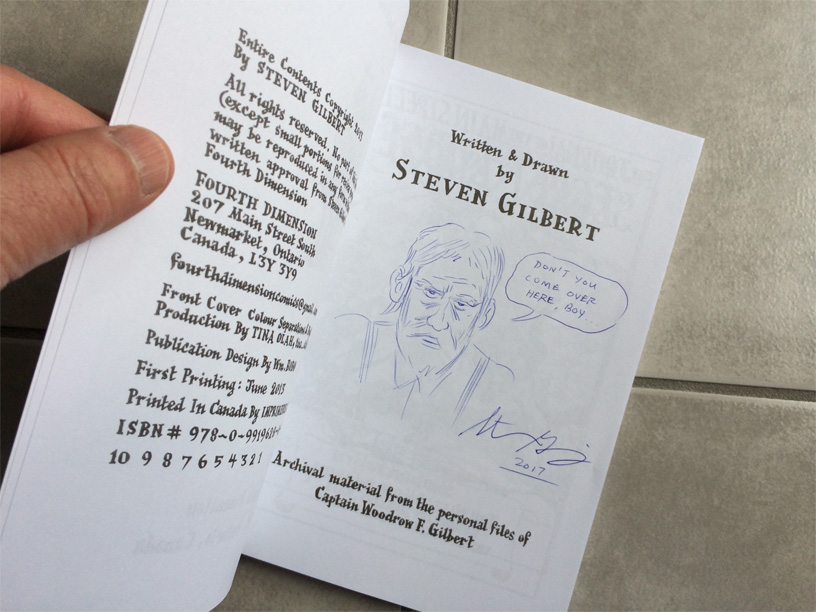 Entire Contents Copyright 2013
By STEVEN GILBERT
All rights reserved. No part of this
(except small portions for review
may be reproduced in any form
written approval from Steven
Fourth Dimension
FOURTH DIMENSION
207 Main Street South
Newmarket, Ontario
Canada, L3Y 3Y9
fourthdimensioncomics@gmail
Front Cover Colour Separations
Production By TINA OLAH,
Publication Design By Wm.
First Printing: June 2013
Printed In Canada By
ISBN # 978-0-99196
10 9 8 7 6 5 4 3 2 1
Written & Drawn
by
STEVEN GILBERT
DON'T YOU
COME OVER
HERE, BOY...
2017
Archival material from the personal files of
Captain Woodrow F. Gilbert